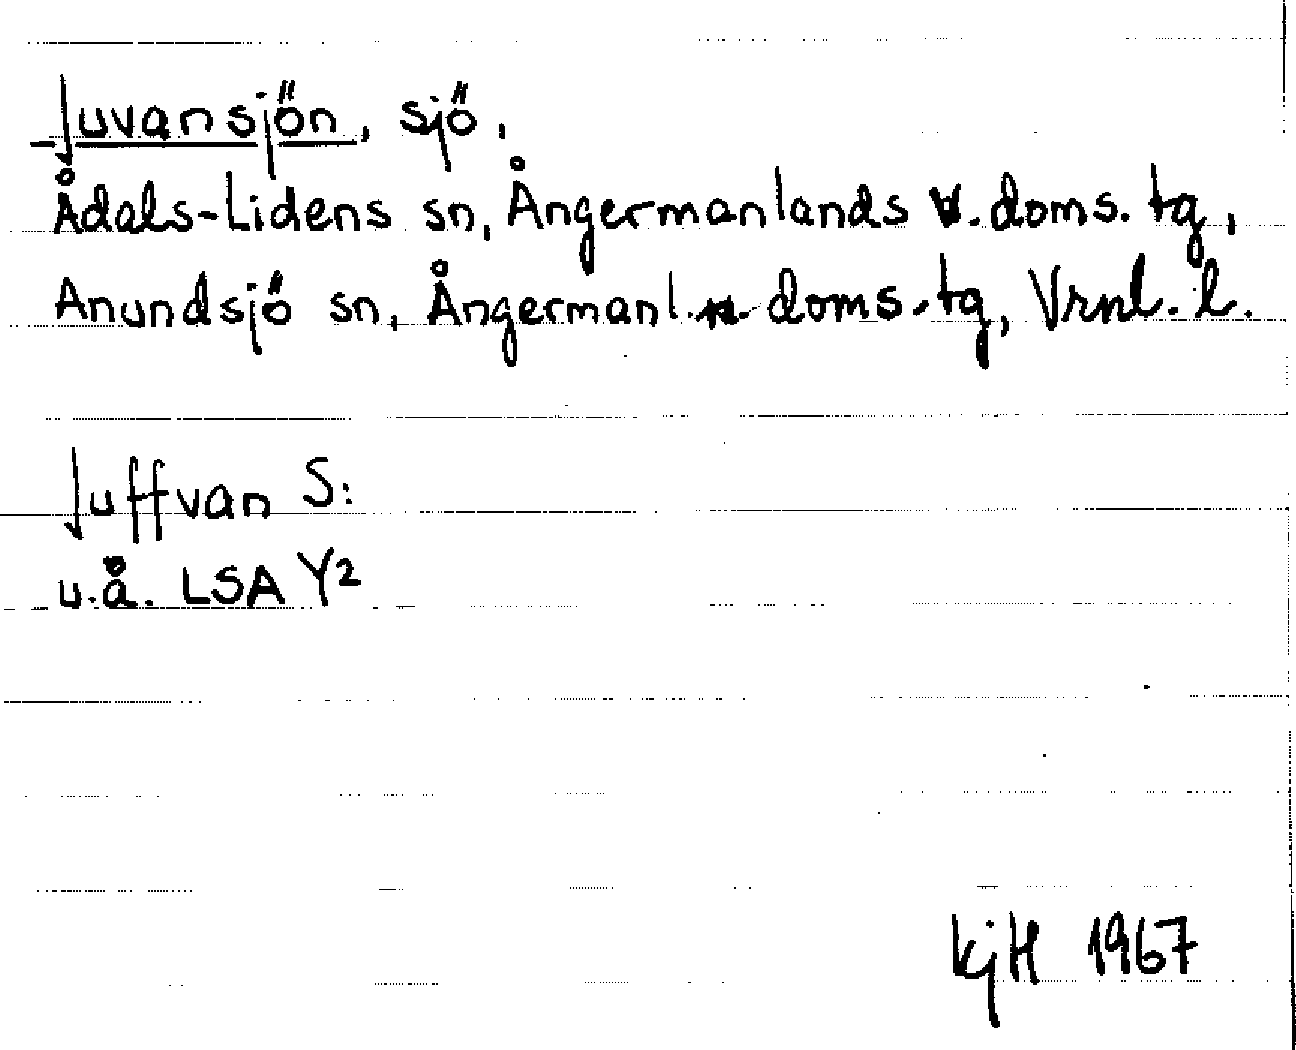 Juvansjön, sjö,
Ådals-Lidens sn, Ångermanlands v. doms. tg,
Anundsjö sn, Ångermanl. n. doms. tg, Vrnl. l.
Juffvan S:
u.å. LSA Y2
KjH 1967